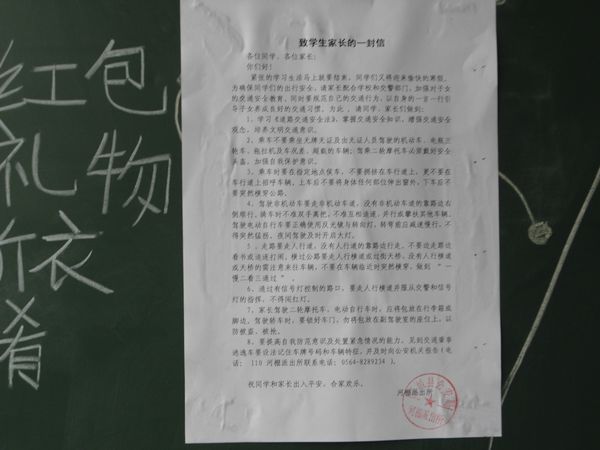 红包
礼物
新衣
肴
致学生家长的一封信
各位同学、各位家长：
你们好！
紧张的学习生活马上就要结束，同学们又将迎来愉快的寒假，
为确保同学们的出行安全，请家长配合学校和交警部门，加强对子女
的交通安全教育，同时要规范自己的交通行为，以自身的一言一行引
导子女养成良好的交通习惯。为此，请同学、家长们做到：
1、学习《道路交通安全法》，掌握交通安全知识，增强交通安全
观念，培养文明交通意识。
2、乘车不要乘坐无牌无证及由无证人员驾驶的机动车、电瓶三
轮车、拖拉机及车况差、超载的车辆；驾乘二轮摩托车必需戴好安全
头盔，加强自我保护意识。
3、乘车时要在指定地点侯车，不要拥挤在车行道上，更不要在
车行道上招呼车辆，上车后不要将身体任何部位伸出窗外，下车后不
要突然横穿公路。
4、驾驶非机动车要走非机动车道，没有非机动车道的靠路边右
侧顺行。骑车时不准双手离把，不准互相追逐，并行或攀扶其他车辆。
驾驶电动自行车要正确使用反光镜与转向灯，转弯前应减速慢行，不
得突然猛拐，夜间驾驶及时开启大灯。
5、走路要走人行道，没有人行道的靠路边行走，不要边走路边
看书或追逐打闹，横过公路要走人行横道或过街天桥，没有人行横道
或天桥的需注意来往车辆，不要在车辆临近时突然横穿，做到“一
慢二看三通过”。
6、通过有信号灯控制的路口，要走人行横道并服从交警和信号
灯的指挥，不得闯红灯。
7、家长驾驶二轮摩托车、电动自行车时，应将包放在行李箱或
脚边，驾驶轿车时，要锁好车门，勿将包放在副驾驶室的座位上，以
防被盗、被抢。
8、要提高自我防范意识及处置紧急情况的能力，见到交通肇事
逃逸车要设法记住车牌号码和车辆特征，并及时向公安机关报告（电
话：110 河棚派出所联系电话：0564-8289234）。
祝同学和家长出入平安、合家欢乐。
河棚派出所